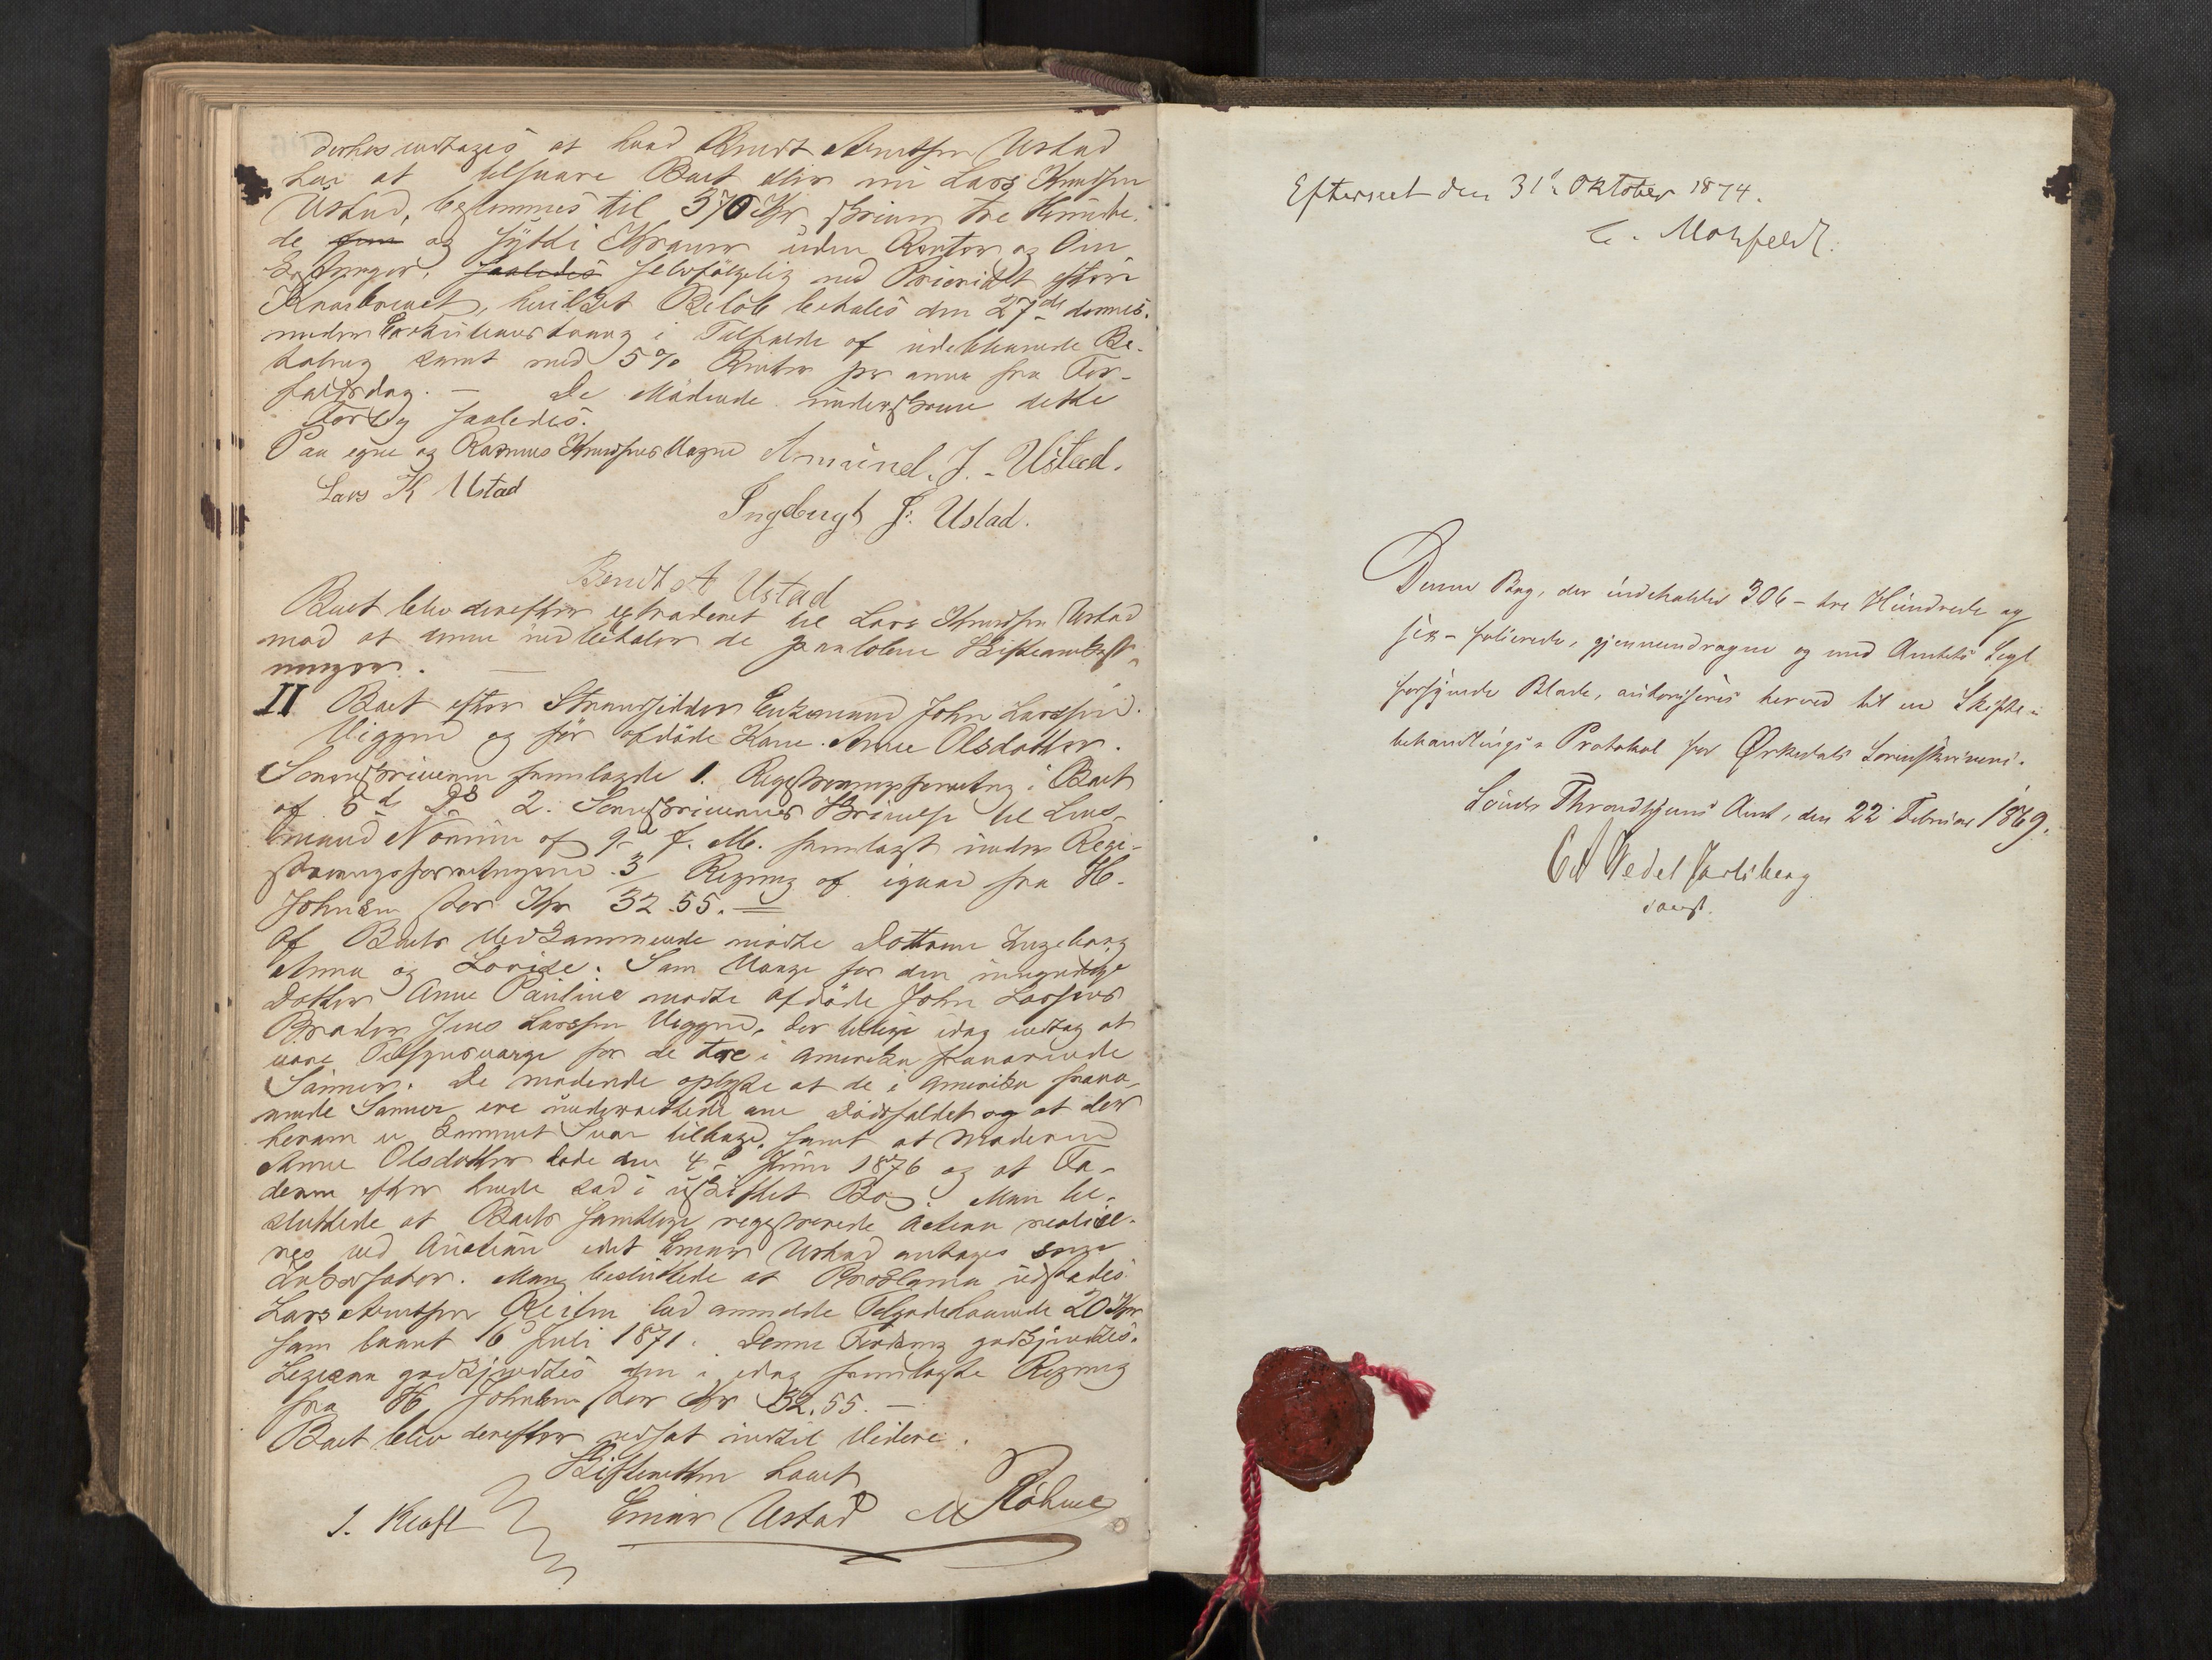 derhos vedtages at hvad Berndt Arntsen Ustad
har at tilsvare Boet eller nu Lars Knudsen
Ustad, bestemmes til 370 Kr skriver tre Hundre-
de fem og sytti Kroner uden Renter og Om-
kostninger, saaledes selvfølgelig med Prioritet efter
Knæbrevet, hvilket Beløb betales den 27de dennes
under Exekutionstvang i Tilfælde af udeblivende Be-
taling samt med 5% Renter pr anno fra For-
faldsdag. — De Mødende underskreve dette
Forlig saaledes.
Paa egne og Rasmus Knudsens Vegne Amund. J. Ustad.
Lars K Ustad
Ingebregt J: Ustad.
Bendt A Ustad
Boet blev derefter extraderet til Lars Knudsen Ustad
mod at denne udbetaler de paaløbne Skifteomkost-
ninger. —
II Boet efter Strandsidder Enkemand John Larssen
Viggen og før afdøde Kone Anne Olsdatter.
Sorenskriveren fremlagde 1. Registreringsforretning i Boet
af 5d Ds 2. Sorenskriverens Skrivelse til Lens-
mand Norum af 9d f. M. fremlagt under Regi-
streringsforretningen 3/ Regning af igaar fra H.
Johnsen stor Kr 32.55. =
Af Boets Vedkommende mødte Døttrene Ingeborg
Anna og Lovise. Som Værge for den umyndige
Datter Anne Pauline mødte afdøde John Larsens
Broder Jens Larssen Viggen, der tillige idag vedtog at
være Tilsynsværge for de tre i Amerika fraværende
Sønner. De mødende oplyste at de i Amerika fravæ-
rende Sønner ere underrettede om Dødsfaldet og at der
herom er kommet Svar tilbage, samt at Moderen
Anne Olsdatter døde den 4de Juni 1876 og at Fa-
deren efter hende sad i uskiftet Bo. Man be-
sluttede at Boets samtlige registrerede Aktiva realise-
res ved Auction idet Einar Ustad antages som
Inkassator. Man besluttede at Proklama udstedes
Lars Arntsen Reiten lod anmelde Tilgodehavende 20 Kr
som laant 16 Juli 1871. Denne Fordring godkjendtes.
Ligesaa godkjendtes den idag fremlagte Regning
fra H. Johnsen stor Kr 32.55. —
Boet blev derefter udsat indtil Videre.
Skifteretten hævet
J. Kraft Einar Ustad M Røhme
Efterseet den 31te Oktober 1874.
C. Motzfeldt.
Denne Bog, der indeholder 306 – tre Hundrede og
sex – folierede, gjennemdragne og med Amtets Segl
forsynede Blade, autoriseres herved til en Skifte-
behandlings-Protokol for Ørkedals Sorenskriveri.
Søndre Throndhjems Amt, den 22 Februar 1869.
Ed Wedel Jarlsberg
const.